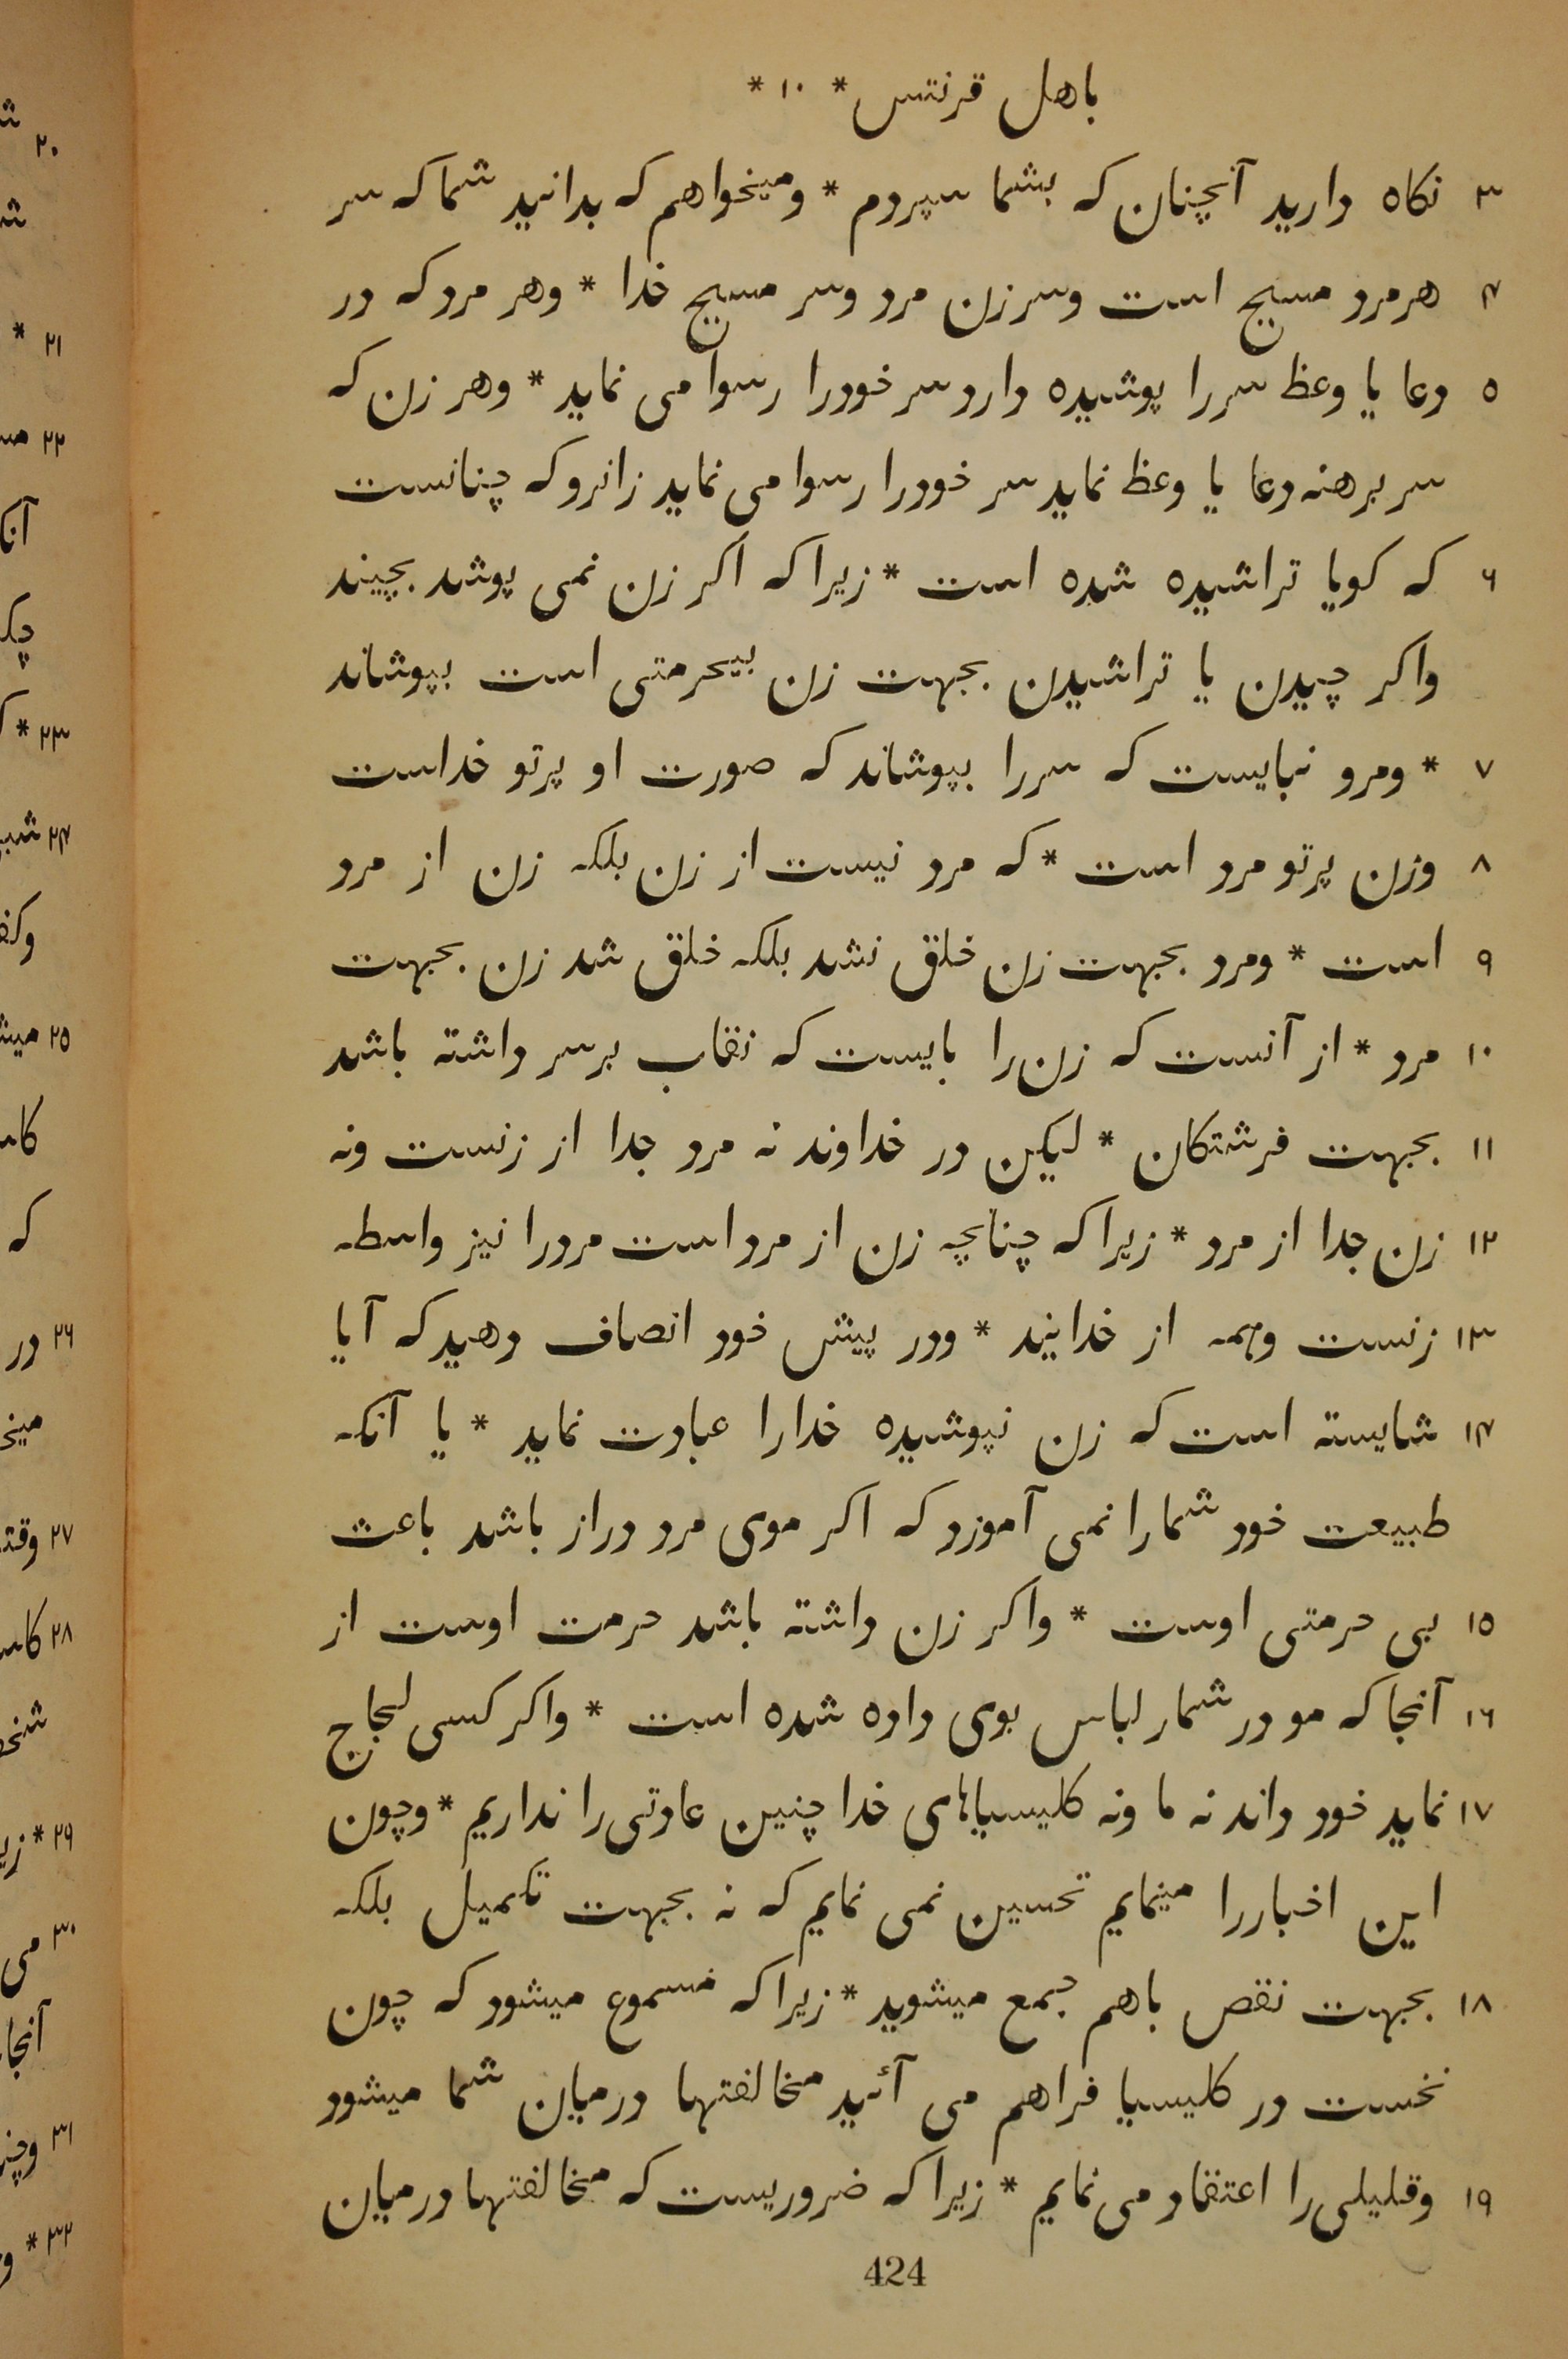 باهل قرنتس * ۱۰ *
۳ نكاه دارید آنچنان که بشما سپردم * ومیخواهم که بدانید شما که سر
۴ هرمرد مسیح است وسر زن مرد وسر مسیح خدا * وهر مرد که در
۵ دعا یا وعظ سررا پوشیده دارد سر خودرا رسوا می نماید * وهر زن که
سر برهنه دعا یا وعظ نماید سر خودرا رسوا می نماید زانرو که چنانست
۶ که کویا تراشیده شده است * زیرا که اکر زن نمی پوشد بچیند
واکر چیدن یا تراشیدن بجهت زن بیحرمتی است بپوشاند
۷ * ومرد نبایست که سررا بپوشاند که صورت او پرتو خداست
۸ وزن پرتو مرد است * که مرد نیست از زن بلکه زن از مرد
۹ است * ومرد بجهت زن خلق نشد بلکه خلق شد زن بجهت
۱۰ مرد * از آنست که زن را بایست که نقاب برسر داشته باشد
۱۱ بجهت فرشتکان * لیکن در خداوند نه مرد جدا از زنست ونه
۱۲ زن جدا از مرد * زیرا که چنانچه زن از مرد است مردرا نیز واسطه
۱۳ زنست وهمه از خدایند * ودر پیش خود انصاف دهید که آیا
۱۴ شایسته است که زن نپوشیده خدارا عبادت نماید * یا آنکه
طبیعت خود شمارا نمی آموزد که اکر موی مرد دراز باشد باعث
۱۵ بی حرمتی اوست * واکر زن داشته باشد حرمت اوست از
۱۶ آنجا که مو در شمار لباس بوی داده شده است * واکر کسی لجاج
۱۷ نماید خود داند نه ما ونه کلیسیاهای خدا چنین عادتی را نداریم * وچون
این اخباررا مینمایم تحسین نمی نمایم که نه بجهت تکمیل بلکه
۱۸ بجهت نقص باهم جمع میشوید * زیرا که مسموع میشود که چون
نخست در کلیسیا فراهم می آئید مخالفتها درمیان شما میشود
۱۹ وقلیلی را اعتقاد می نمایم * زیرا که ضروریست که مخالفتها درمیان
424
۲۰
۲۱ *
۲۲
۲۳ *
۲۴
۲۵
که
۲۶ در
۲۷
۲۸
۲۹ *
۳۰ می
۳۱
۳۲ *